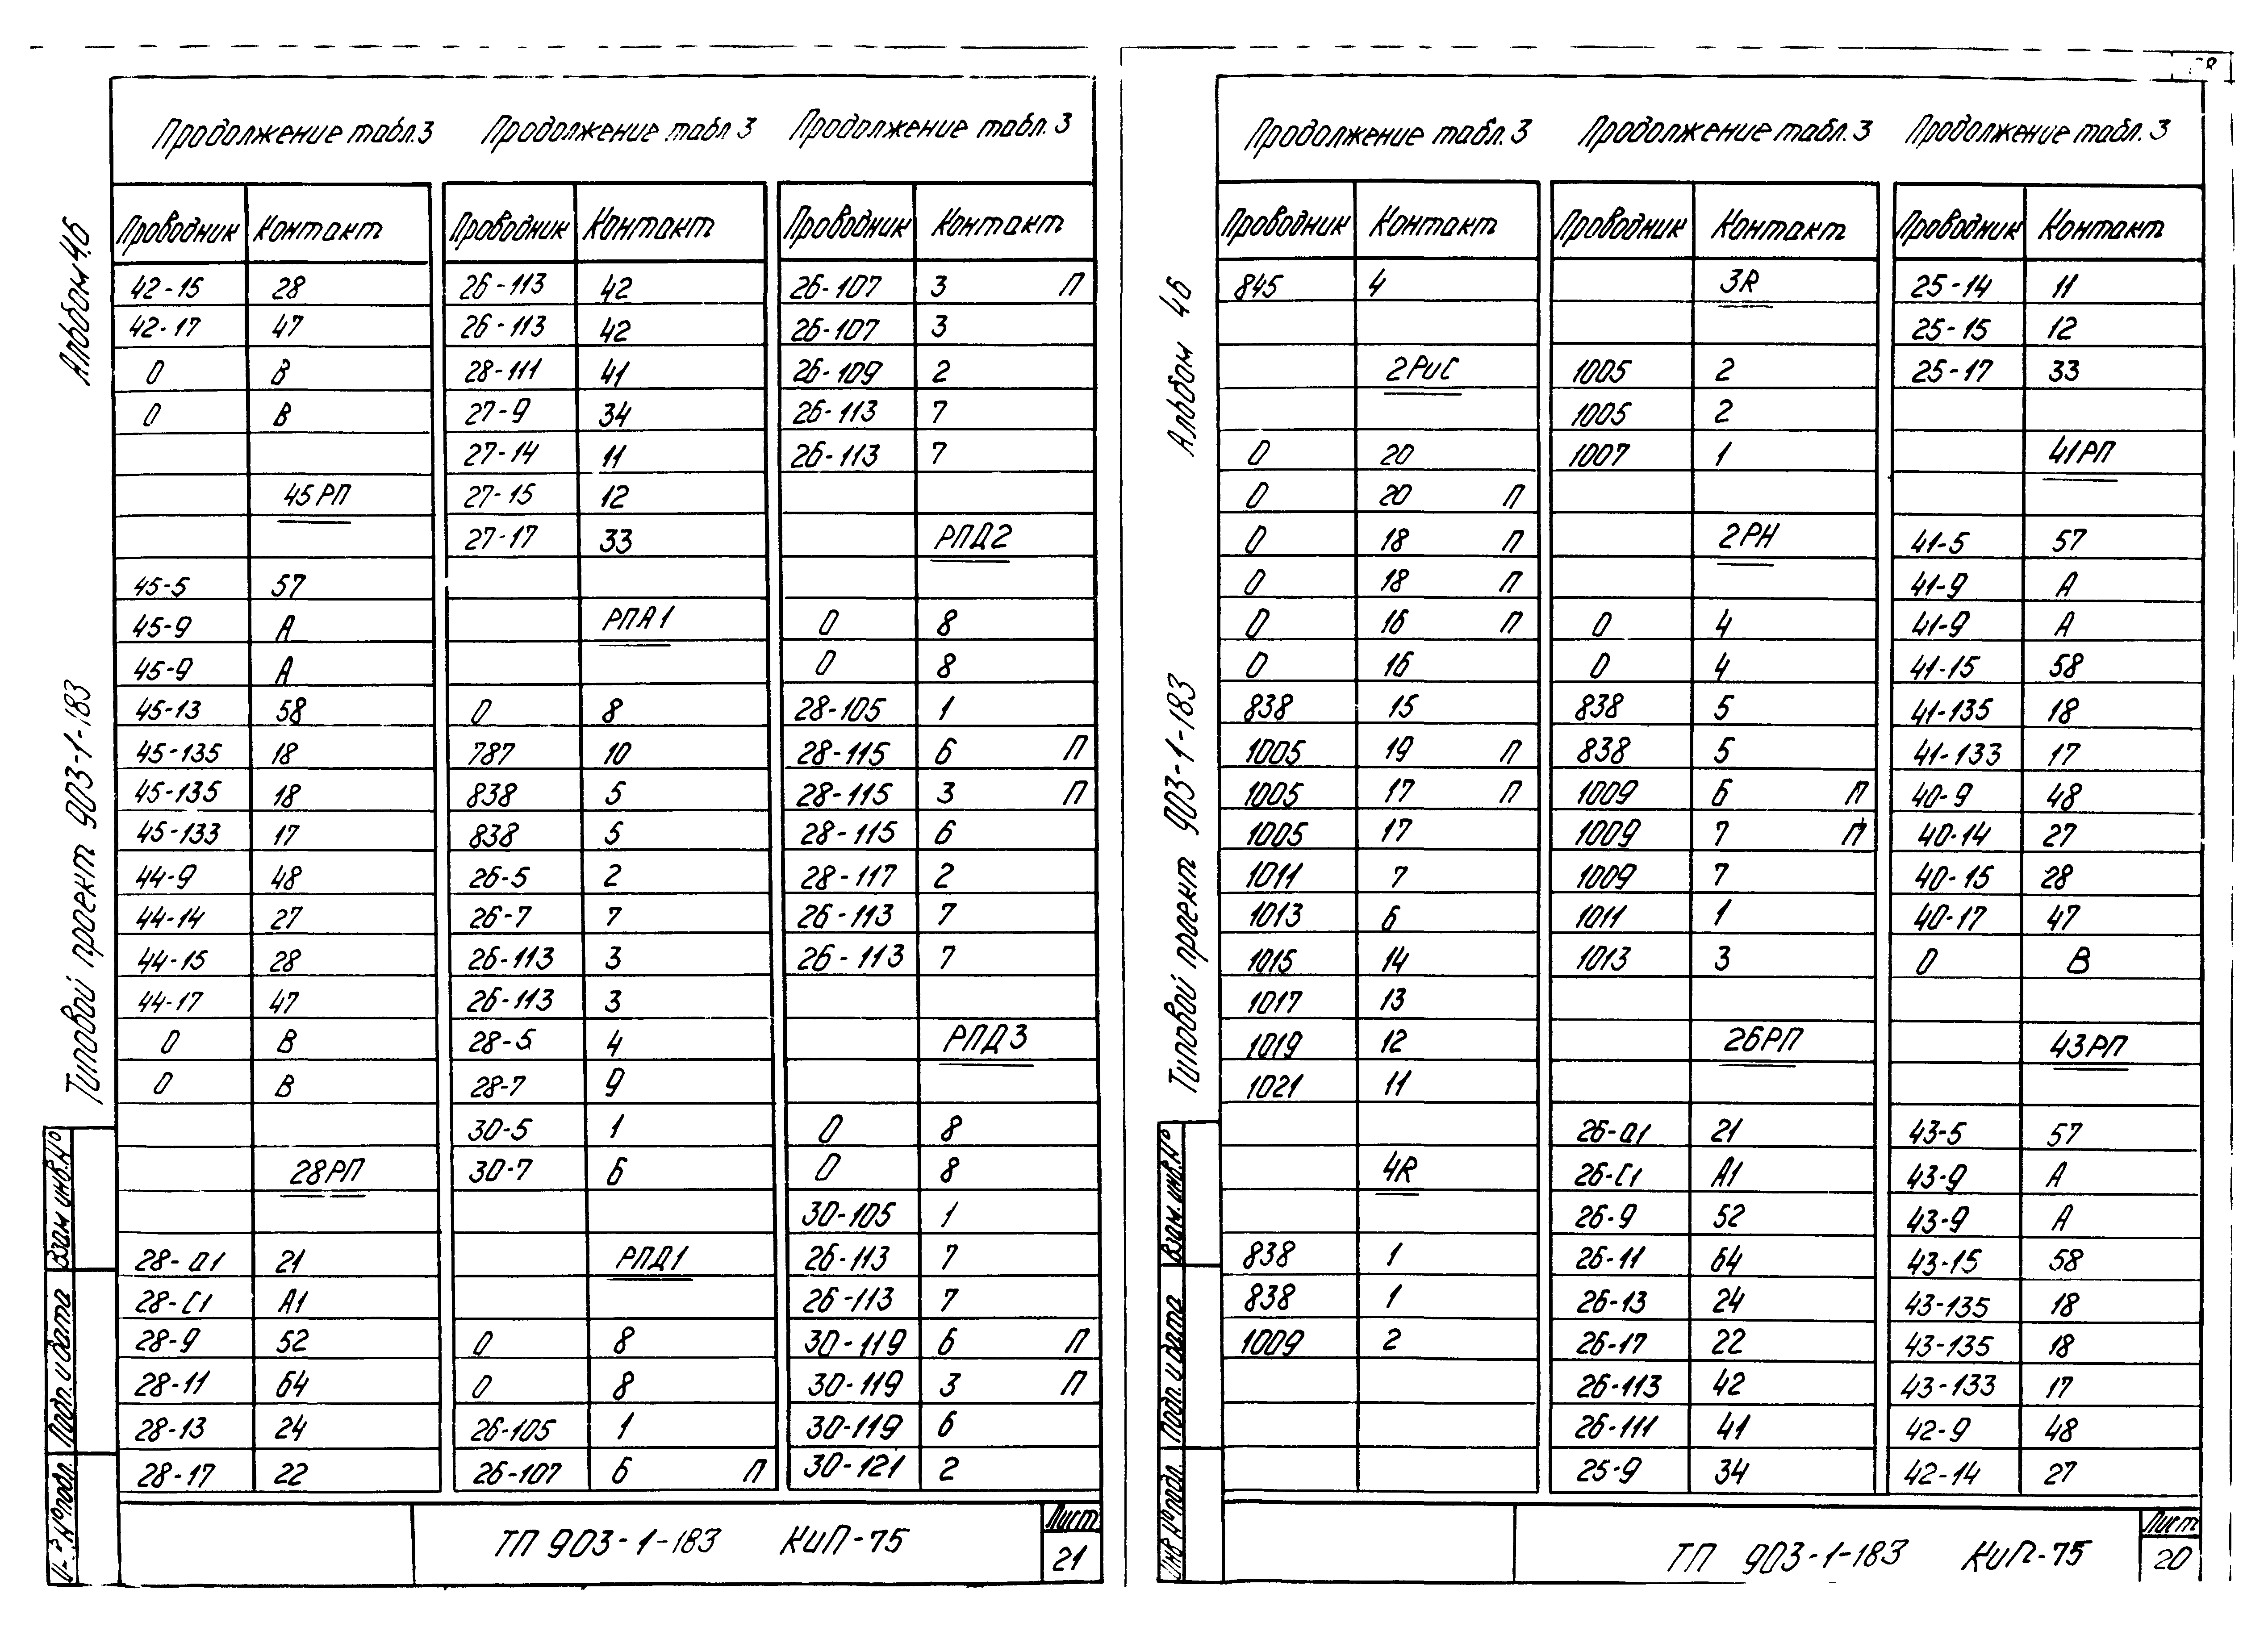 Продолжение табл.3
Проводник Контакт
42-15 28
42-17 47
0 В
0 В
45РП
45-5 57
45-9 А
45-9 А
45-13 58
45-135 18
45-135 18
45-133 17
44-9 48
44-14 27
44-15 28
44-17 47
0 В
0 В
28РП
28-а1 21
28-С1 А1
28-9 52
28-11 64
28-13 24
28-17 22
Продолжение табл 3
Проводник Контакт
26-113 42
26-113 42
28-111 41
27-9 34
27-14 11
27-15 12
27-17 33
РПА1
0 8
787 10
838 5
838 5
26-5 2
26-7 7
26-113 3
26-113 3
28-5 4
28-7 9
30-5 1
30-7 6
РПД1
0 8
0 8
26-105 1
26-107 6 П
Продолжение табл.3
Проводник Контакт
26-107 3 П
26-107 3
26-109 2
26-113 7
26-113 7
РПД2
0 8
0 8
28-105 1
28-115 6 П
28-115 3 П
28-115 6
28-117 2
26-113 7
26-113 7
РПД3
0 8
0 8
30-105 1
26-113 7
26-113 7
30-119 6 П
30-119 3 П
30-119 6
30-121 2
Альбом 4.6
Типовой проект 903-1-183
Взам инв.№
Подп. и дата
№ подл.
ТП 903-1-183 КиП-75
Лист
21
Продолжение табл.3
Проводник Контакт
845 4
2РиС
0 20
0 20 П
0 18 П
0 18 П
0 16 П
0 16
838 15
1005 19 П
1005 17 П
1005 17
1011 7
1013 6
1015 14
1017 13
1019 12
1021 11
4R
838 1
838 1
1009 2
Продолжение табл.3
Проводник Контакт
3R
1005 2
1005 2
1007 1
2РН
0 4
0 4
838 5
838 5
1009 6 П
1009 7 П
1009 7
1011 1
1013 3
26РП
26-а1 21
26-С1 А1
26-9 52
26-11 64
26-13 24
26-17 22
26-113 42
26-111 41
25-9 34
Продолжение табл.3
Проводник Контакт
25-14 11
25-15 12
25-17 33
41РП
41-5 57
41-9 А
41-9 А
41-15 58
41-135 18
41-133 17
40-9 48
40-14 27
40-15 28
40-17 47
0 В
43РП
43-5 57
43-9 А
43-9 А
43-15 58
43-135 18
43-135 18
43-133 17
42-9 48
42-14 27
Альбом 4б
Типовой проект 903-1-183
Взам. инв.№
Подп. и дата
Инв № подл.
ТП 903-1-183 КиП-75
Лист
20